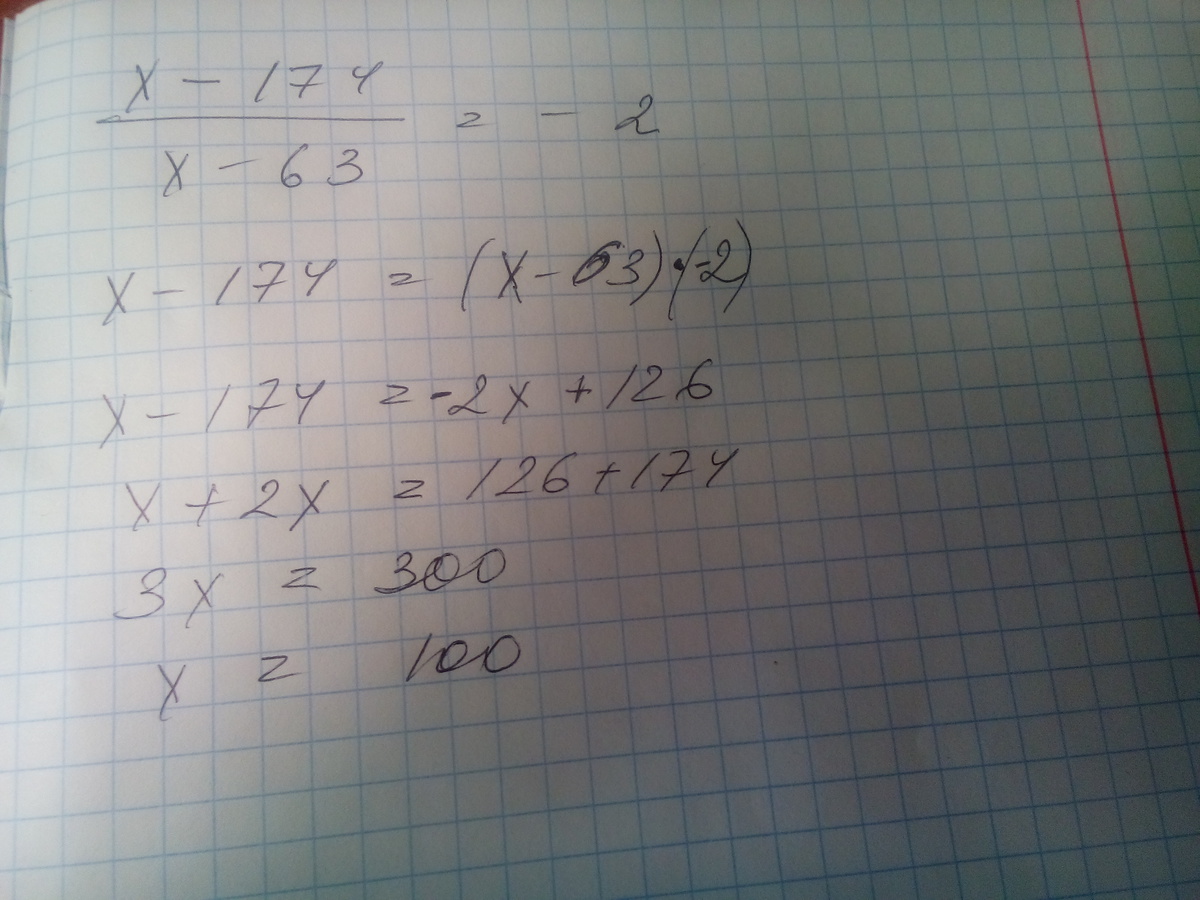 x - 174
x - 63
= - 2
x - 174 = (x - 63)·(-2)
x - 174 = -2x + 126
x + 2x = 126 + 174
3x = 300
x = 100